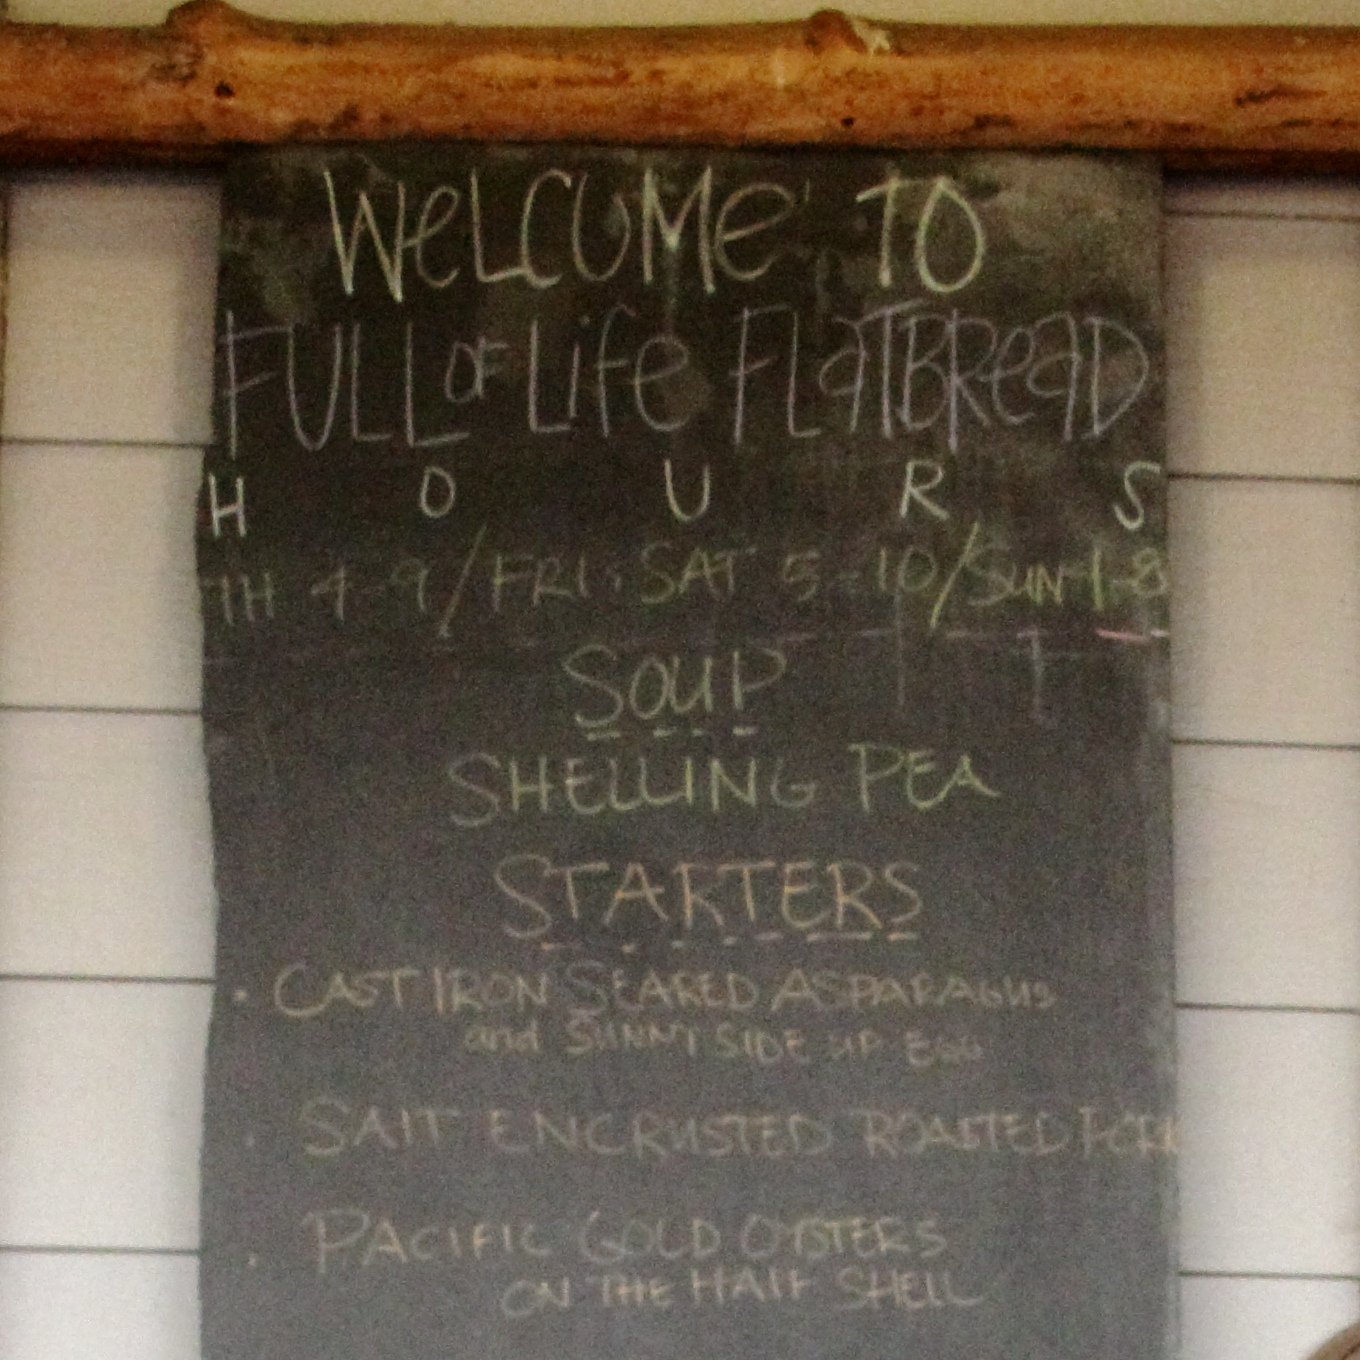 WeLCOMe TO
FULL OF Life FLaTBReaD
H O U R S
TH 4-9/FRI·SAT 5-10/SUN 1-8
SOUP
SHELLING PEA
STARTERS
· CAST IRON SEARED ASPARAGUS
and SUNNY SIDE UP EGG
· SALT ENCRUSTED ROASTED PORK
· PACIFIC GOLD OYSTERS
ON THE HALF SHELL